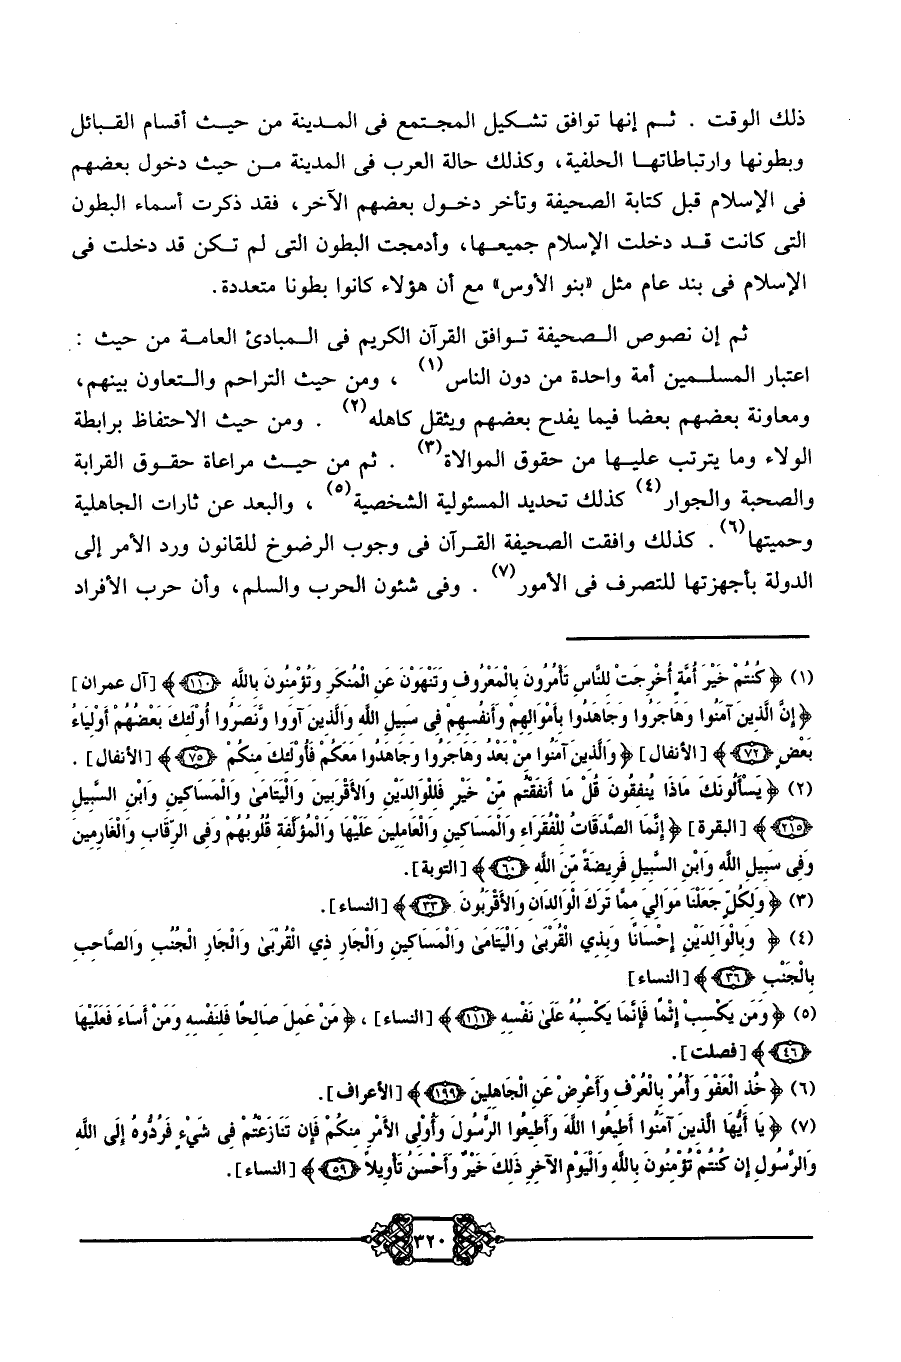 ذلك الوقت . ثم إنها توافق تشكيل المجتمع فى المدينة من حيث أقسام القبائل
وبطونها وارتباطاتها الحلفية، وكذلك حالة العرب فى المدينة من حيث دخول بعضهم
فى الإسلام قبل كتابة الصحيفة وتأخر دخول بعضهم الآخر، فقد ذكرت أسماء البطون
التى كانت قد دخلت الإسلام جميعها، وأدمجت البطون التى لم تكن قد دخلت فى
الإسلام فى بند عام مثل «بنو الأوس» مع أن هؤلاء كانوا بطونا متعددة.
ثم إن نصوص الصحيفة توافق القرآن الكريم فى المبادئ العامة من حيث :
اعتبار المسلمين أمة واحدة من دون الناس(١) ، ومن حيث التراحم والتعاون بينهم،
ومعاونة بعضهم بعضا فيما يفدح بعضهم ويثقل كاهله(٢) . ومن حيث الاحتفاظ برابطة
الولاء وما يترتب عليها من حقوق الموالاة(٣) . ثم من حيث مراعاة حقوق القرابة
والصحبة والجوار(٤) كذلك تحديد المسئولية الشخصية(٥) ، والبعد عن ثارات الجاهلية
وحميتها(٦) . كذلك وافقت الصحيفة القرآن فى وجوب الرضوخ للقانون ورد الأمر إلى
الدولة بأجهزتها للتصرف فى الأمور(٧) . وفى شئون الحرب والسلم، وأن حرب الأفراد
(١) ﴿ كُنتُمْ خَيْرَ أُمَّةٍ أُخْرِجَتْ لِلنَّاسِ تَأْمُرُونَ بِالْمَعْرُوفِ وَتَنْهَوْنَ عَنِ الْمُنكَرِ وَتُؤْمِنُونَ بِاللَّهِ ﴿١١٠﴾ ﴾ [آل عمران]
﴿ إِنَّ الَّذِينَ آمَنُوا وَهَاجَرُوا وَجَاهَدُوا بِأَمْوَالِهِمْ وَأَنفُسِهِمْ فِي سَبِيلِ اللَّهِ وَالَّذِينَ آوَوا وَّنَصَرُوا أُوْلَئِكَ بَعْضُهُمْ أَوْلِيَاءُ
بَعْضٍ ﴿٧٢﴾ ﴾ [الأنفال] ﴿ وَالَّذِينَ آمَنُوا مِنْ بَعْدُ وَهَاجَرُوا وَجَاهَدُوا مَعَكُمْ فَأُوْلَئِكَ مِنكُمْ ﴿٧٥﴾ ﴾ [الأنفال] .
(٢) ﴿ يَسْأَلُونَكَ مَاذَا يُنفِقُونَ قُلْ مَا أَنفَقْتُم مِّنْ خَيْرٍ فَلِلْوَالِدَيْنِ وَالأَقْرَبِينَ وَالْيَتَامَىٰ وَالْمَسَاكِينِ وَابْنِ السَّبِيلِ
﴿٢١٥﴾ ﴾ [البقرة] ﴿ إِنَّمَا الصَّدَقَاتُ لِلْفُقَرَاءِ وَالْمَسَاكِينِ وَالْعَامِلِينَ عَلَيْهَا وَالْمُؤَلَّفَةِ قُلُوبُهُمْ وَفِي الرِّقَابِ وَالْغَارِمِينَ
وَفِي سَبِيلِ اللَّهِ وَابْنِ السَّبِيلِ فَرِيضَةً مِّنَ اللَّهِ ﴿٦٠﴾ ﴾ [التوبة].
(٣) ﴿ وَلِكُلٍّ جَعَلْنَا مَوَالِيَ مِمَّا تَرَكَ الْوَالِدَانِ وَالأَقْرَبُونَ ﴿٣٣﴾ ﴾ [النساء].
(٤) ﴿ وَبِالْوَالِدَيْنِ إِحْسَانًا وَبِذِي الْقُرْبَىٰ وَالْيَتَامَىٰ وَالْمَسَاكِينِ وَالْجَارِ ذِي الْقُرْبَىٰ وَالْجَارِ الْجُنُبِ وَالصَّاحِبِ
بِالْجَنْبِ ﴿٣٦﴾ ﴾ [النساء]
(٥) ﴿ وَمَن يَكْسِبْ إِثْمًا فَإِنَّمَا يَكْسِبُهُ عَلَىٰ نَفْسِهِ ﴿١١١﴾ ﴾ [النساء] ، ﴿ مَنْ عَمِلَ صَالِحًا فَلِنَفْسِهِ وَمَنْ أَسَاءَ فَعَلَيْهَا
﴿٤٦﴾ ﴾ [فصلت].
(٦) ﴿ خُذِ الْعَفْوَ وَأْمُرْ بِالْعُرْفِ وَأَعْرِضْ عَنِ الْجَاهِلِينَ ﴿١٩٩﴾ ﴾ [الأعراف].
(٧) ﴿ يَا أَيُّهَا الَّذِينَ آمَنُوا أَطِيعُوا اللَّهَ وَأَطِيعُوا الرَّسُولَ وَأُوْلِي الأَمْرِ مِنكُمْ فَإِن تَنَازَعْتُمْ فِي شَيْءٍ فَرُدُّوهُ إِلَى اللَّهِ
وَالرَّسُولِ إِن كُنتُمْ تُؤْمِنُونَ بِاللَّهِ وَالْيَوْمِ الآخِرِ ذَلِكَ خَيْرٌ وَأَحْسَنُ تَأْوِيلاً ﴿٥٩﴾ ﴾ [النساء].
٣٢٠